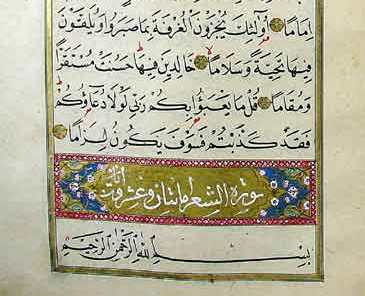 اِمَامًا اُولٰٓئِكَ يُجْزَوْنَ الْغُرْفَةَ بِمَا صَبَرُوا وَيُلَقَّوْنَ
فِيهَا تَحِيَّةً وَسَلَامًا خَالِدِينَ فِيهَا حَسُنَتْ مُسْتَقَرًّا
وَمُقَامًا قُلْ مَا يَعْبَؤُا بِكُمْ رَبِّى لَوْلَا دُعَاؤُكُمْ
فَقَدْ كَذَّبْتُمْ فَسَوْفَ يَكُونُ لِزَامًا
سورة الشعرا مائتان وعشرون
بِسْمِ اللّٰهِ الرَّحْمٰنِ الرَّحِيمِ